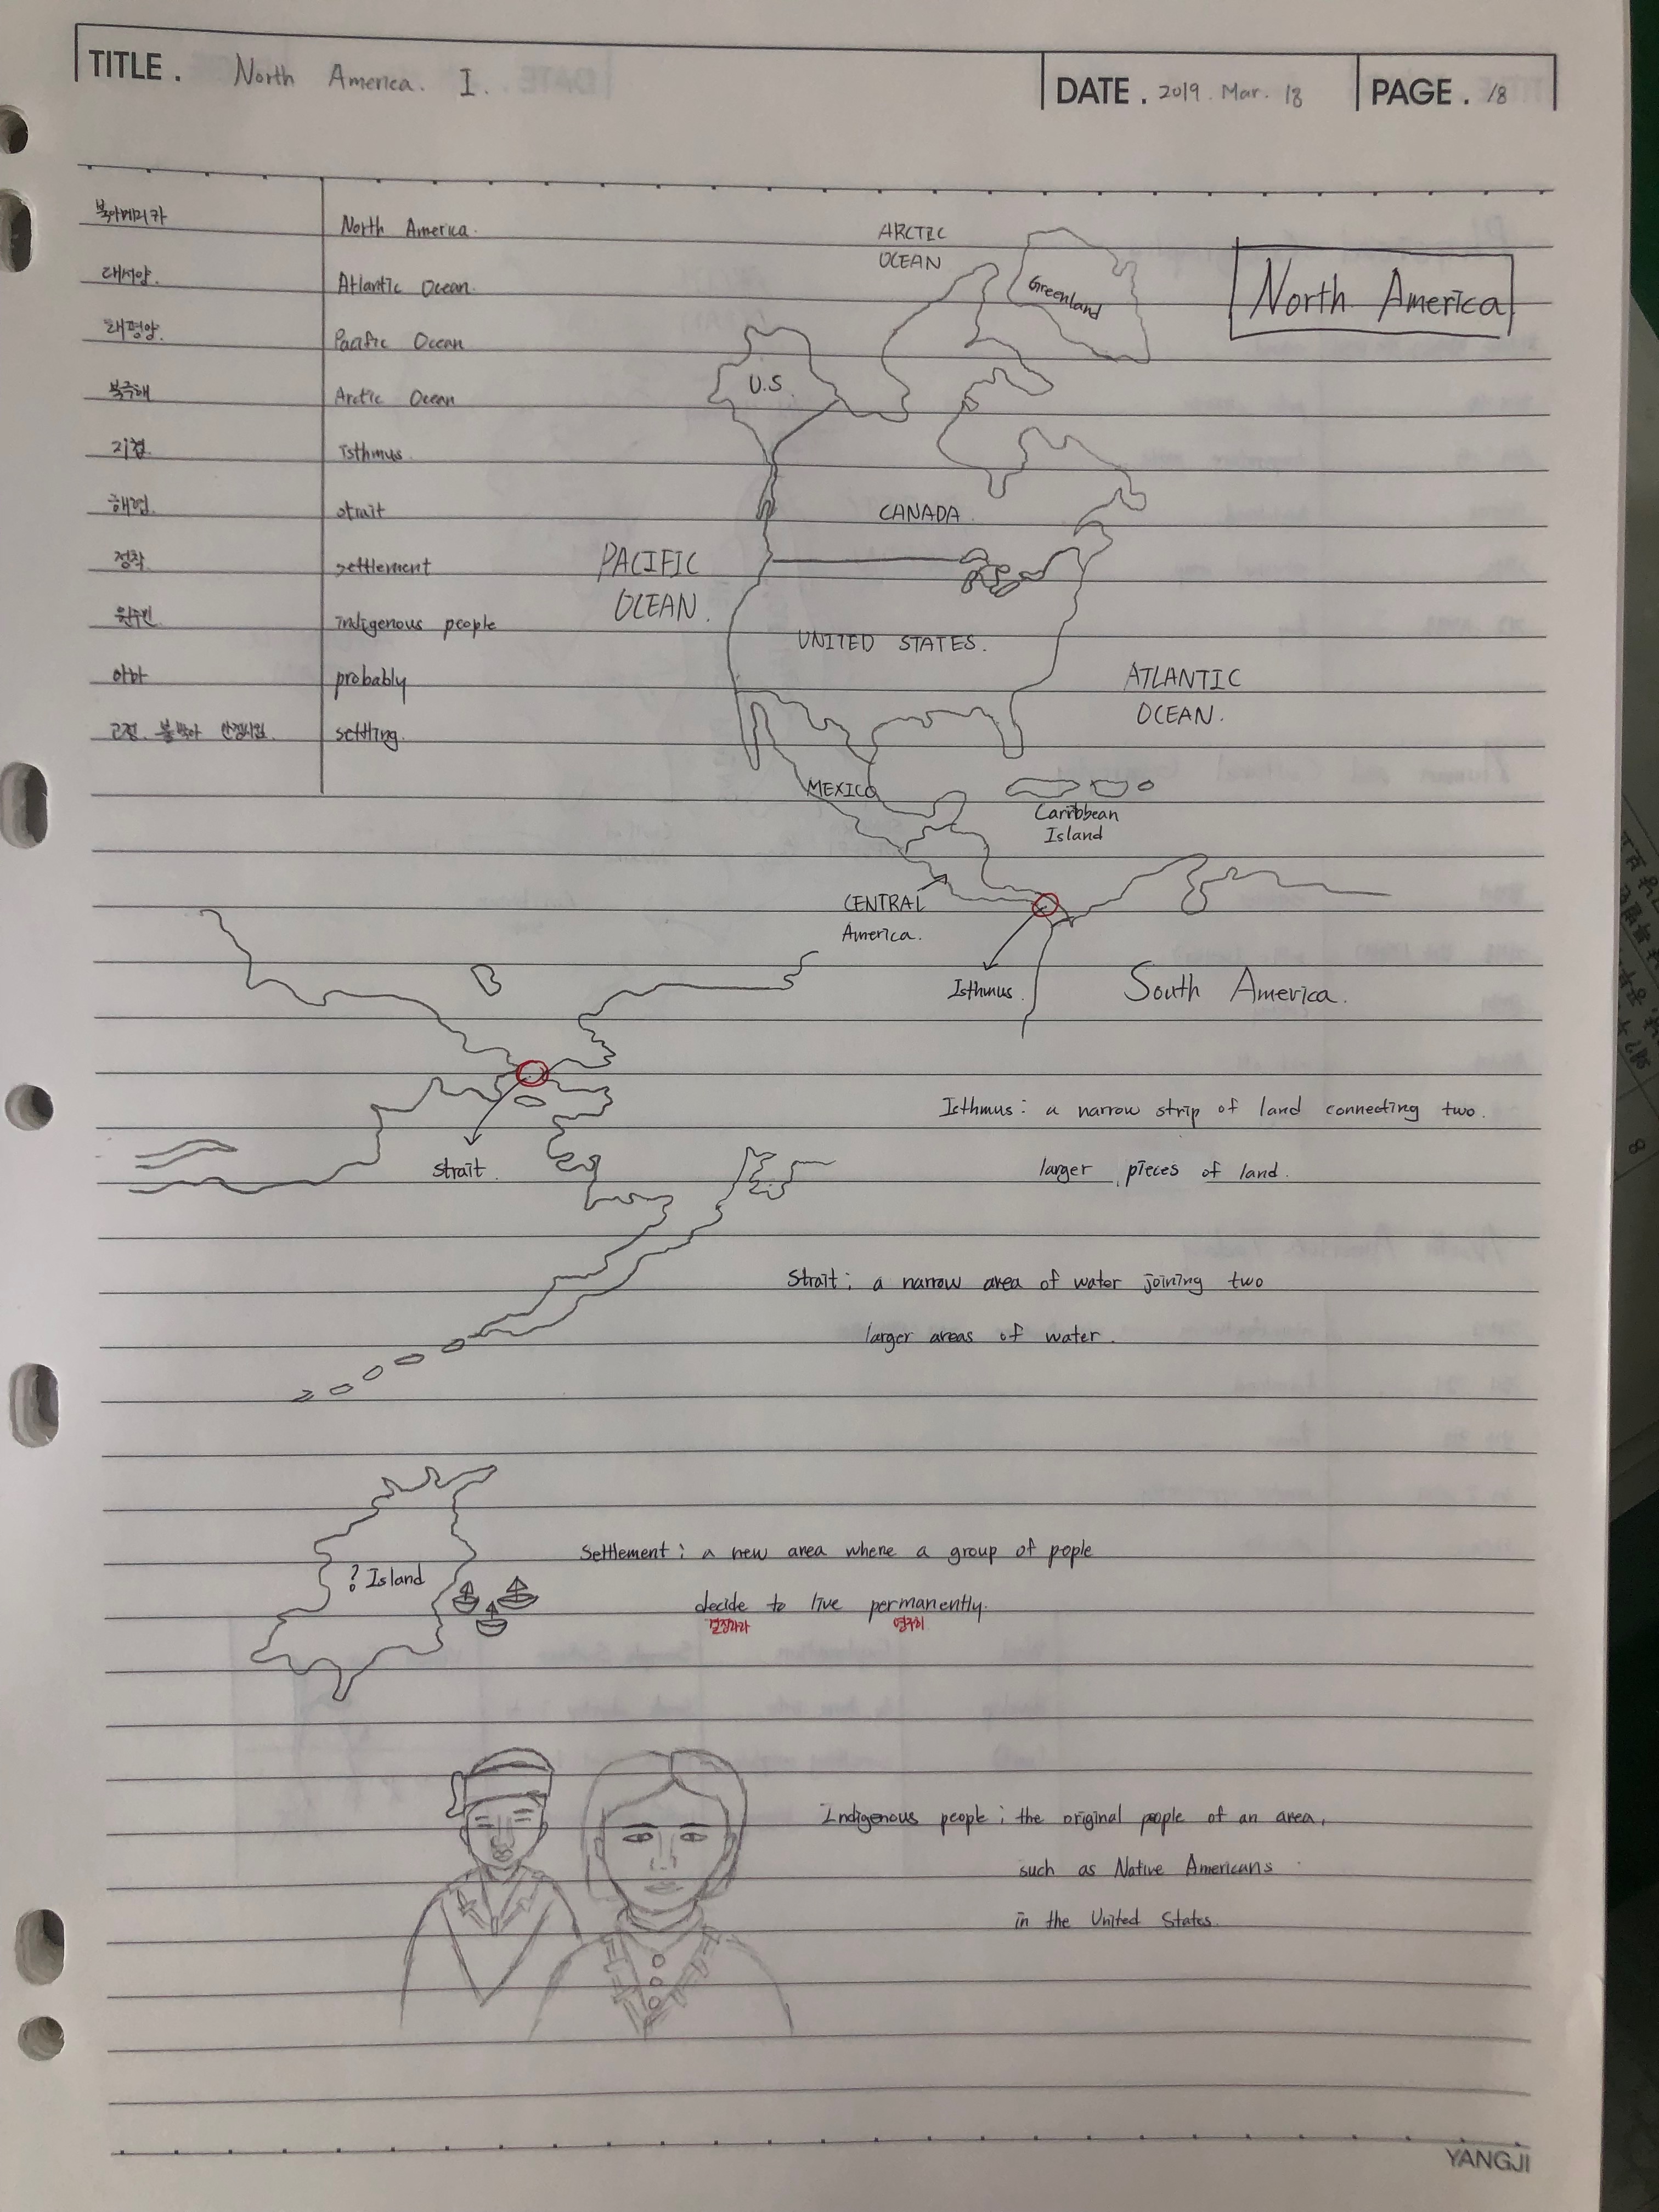 TITLE. North America. I.
DATE. 2019. Mar. 18
PAGE. 18
북아메리카 North America.
대서양. Atlantic Ocean.
태평양. Pacific Ocean
북극해 Arctic Ocean
지협. isthmus.
해협. strait
정착 settlement
원주민. indigenous people
아마 probably
고정. 붙박아 안정시킴. settling.
North America
ARCTIC
OCEAN
Greenland
U.S.
CANADA.
PACIFIC
OCEAN.
UNITED STATES.
ATLANTIC
OCEAN.
MEXICO
Carribbean
Island
CENTRAL
America.
Isthmus.
South America.
strait.
Isthmus: a narrow strip of land connecting two.
larger pieces of land.
Strait: a narrow area of water joining two
larger areas of water.
? Island
Settlement: a new area where a group of pople
decide to live permanently.
결정하다 영구히
Indigenous people; the original people of an area,
such as Native Americans
in the United States.
YANGJI